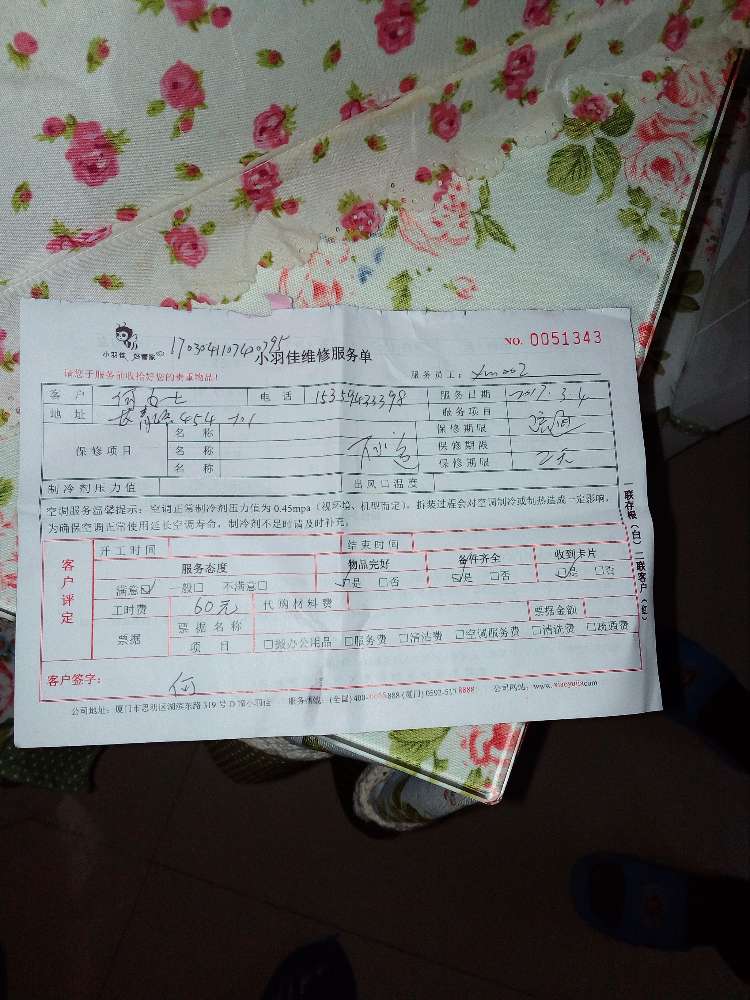 小羽佳 好管家 170304110740795
小羽佳维修服务单
NO. 0051343
请您于服务前收拾好您的贵重物品!
服务员工: xm002
客 户 何女士 电 话 15359433398 服务日期 2017.3.4
地 址 长青路454-701 服务项目 疏通
保修项目 名 称 下水道 保修期限
名 称 保修期限
名 称 保修期限 2天
制冷剂压力值 出风口温度
空调服务温馨提示: 空调正常制冷剂压力值为0.45mpa (视环境、机型而定), 拆装过程会对空调制冷或制热造成一定影响,
为确保空调正常使用延长空调寿命, 制冷剂不足时请及时补充。
一联存根(白) 二联客户(红)
客户评定
开工时间 结束时间
服务态度 物品完好 备件齐全 收到卡片
满意☑ 一般□ 不满意□ ☑是 □否 ☑是 □否 ☑是 □否
工时费 60元 代购材料费 票据金额
票据 票据名称
项 目 □报办公用品 □服务费 □清洁费 □空调服务费 □清洗费 □疏通费
客户签字: 何
公司地址: 厦门市思明区湖滨东路319号D 小羽佳 服务热线: (全国) 400- 888 (厦门) 0592- 8888 公司网站: www.xiaoyujia.com